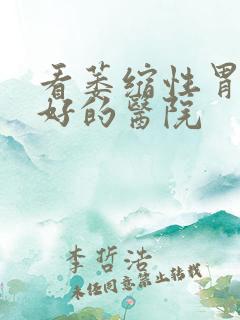 看萎缩性胃
好的醫院
李哲浩
未经同意禁止转载